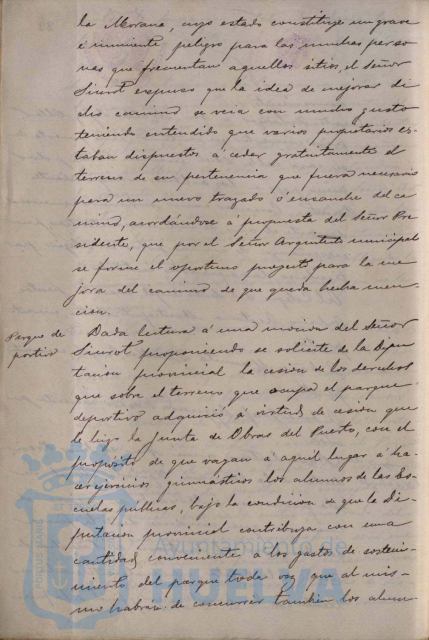 la Morana, cuyo estado constituye un grave
é inminente peligro para las muchas perso-
nas que frecuentan aquellos sitios, el Señor
Siurot expuso que la idea de mejorar di-
cho camino se veía con mucho gusto
teniendo entendido que varios propietarios es-
taban dispuestos á ceder gratuitamente el
terreno de su pertenencia que fuera necesario
para un nuevo trazado ó ensanche del ca-
mino, acordándose á propuesta del Señor Pre-
sidente, que por el Señor Arquitecto municipal
se forme el oportuno proyecto para la me-
jora del camino de que queda hecha men-
ción.
Parque de-
portivo
Dada lectura á una moción del Señor
Siurot proponiendo se solicite de la Dipu-
tación provincial la cesión de los derechos
que sobre el terreno que ocupa el parque
deportivo adquirió á virtud de cesión que
le hizo la Junta de Obras del Puerto, con el
propósito de que vayan á aquel lugar á ha-
cer ejercicios gimnásticos los alumnos de las Es-
cuelas públicas, bajo la condición de que la Di-
putación provincial contribuya con una
cantidad conveniente a los gastos de sosteni-
miento del parque toda vez que al mis-
mo habrán de concurrir también los alum-
Ayuntamiento de
HUELVA